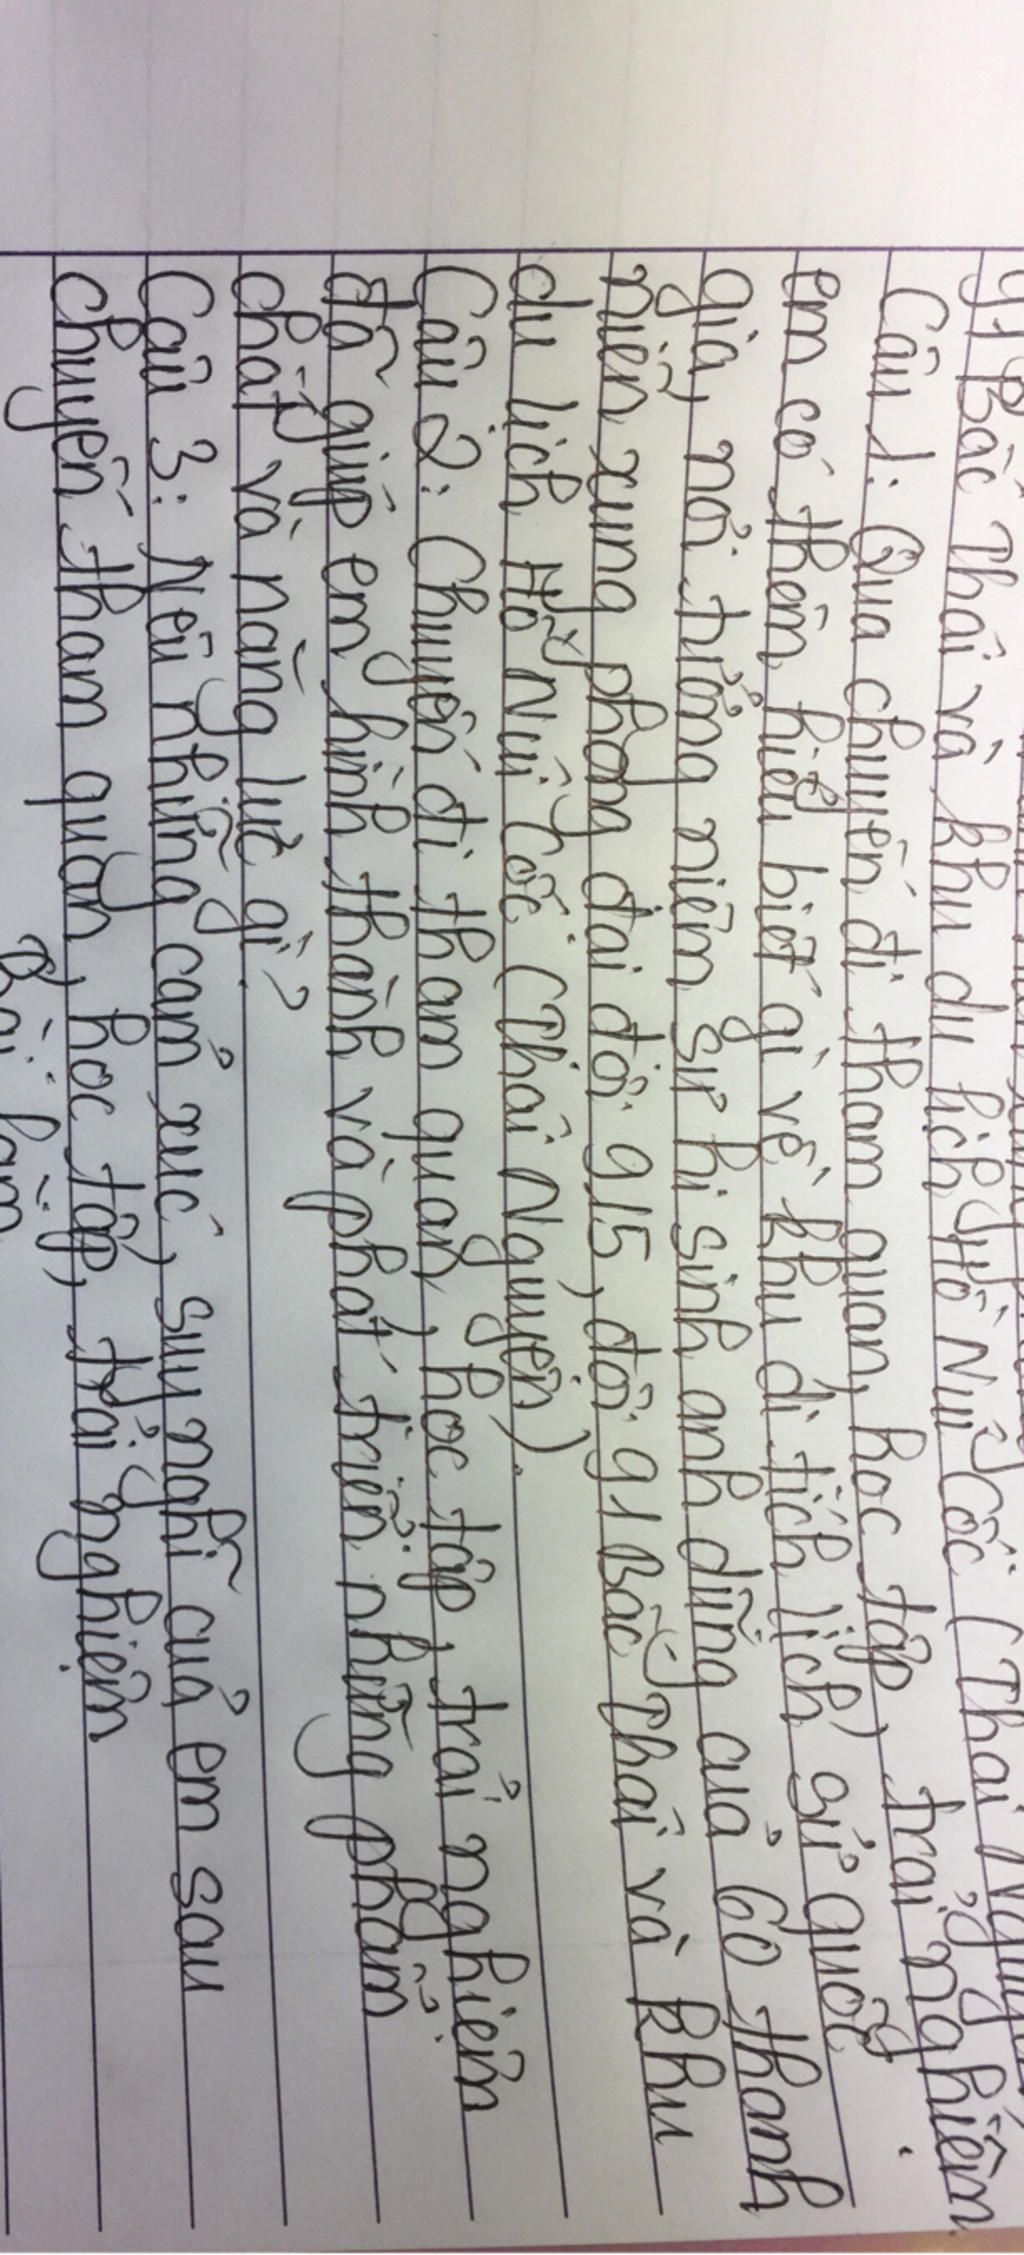 91 Bắc Thái và khu du lịch Hồ Núi Cốc (Thái Nguyên)
Câu 1: Qua chuyến đi tham quan, học tập, trải nghiệm
em có thêm hiểu biết gì về khu di tích lịch sử quốc
gia, nơi tưởng niệm sự hi sinh anh dũng của 60 thanh
niên xung phong đại đội 915, đội 91 Bắc Thái và khu
du lịch Hồ Núi Cốc (Thái Nguyên).
Câu 2: Chuyến đi tham quan, học tập, trải nghiệm
đã giúp em hình thành và phát triển những phẩm
chất và năng lực gì?
Câu 3: Nêu những cảm xúc, suy nghĩ của em sau
chuyến tham quan, học tập, trải nghiệm
Bài làm